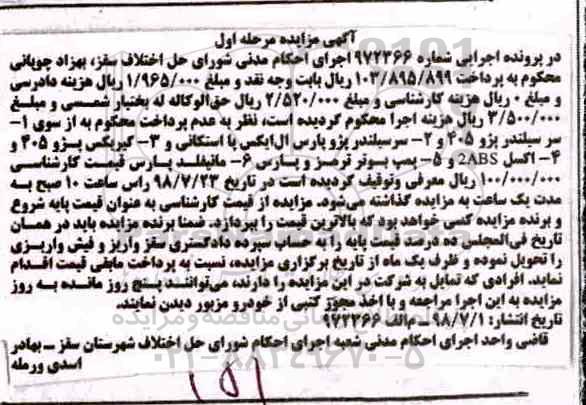 آگهی مزایده مرحله اول
در پرونده اجرایی شماره ۹۷۲۳۶۶ اجرای احکام مدنی شورای حل اختلاف سقز، بهزاد چوپانی
محکوم به پرداخت ۱۰۳/۸۹۵/۸۹۹ ریال بابت وجه نقد و مبلغ ۱/۹۶۵/۰۰۰ ریال هزینه دادرسی
و مبلغ ۰ ریال هزینه کارشناسی و مبلغ ۲/۵۲۰/۰۰۰ ریال حق‌الوکاله له بختیار شمسی و مبلغ
۳/۵۰۰/۰۰۰ ریال هزینه اجرا محکوم گردیده است، نظر به عدم پرداخت محکوم به از سوی ۱-
سر سیلندر پژو ۴۰۵ و ۲- سرسیلندر پژو پارس ال‌ایکس یا استکانی و ۳- گیربکس پژو ۴۰۵ و
۴- اکسل 2ABS و ۵- پمپ بوتر ترمز و پارس ۶- مانیفلد پارس قیمت کارشناسی
۱۰۰/۰۰۰/۰۰۰ ریال معرفی وتوقیف گردیده است در تاریخ ۹۸/۷/۲۳ راس ساعت ۱۰ صبح به
مدت یک ساعت به مزایده گذاشته می‌شود. مزایده از قیمت کارشناسی به عنوان قیمت پایه شروع
و برنده مزایده کسی خواهد بود که بالاترین قیمت را بپردازد. ضمنا برنده مزایده باید در همان
تاریخ فی‌المجلس ده درصد قیمت پایه را به حساب سپرده دادگستری سقز واریز و فیش واریزی
را تحویل نموده و ظرف یک ماه از تاریخ برگزاری مزایده، نسبت به پرداخت مابقی قیمت اقدام
نماید. افرادی که تمایل به شرکت در این مزایده را دارند، می‌توانند پنج روز مانده به روز
مزایده به این اجرا مراجعه و با اخذ مجوز کتبی از خودرو مزبور دیدن نمایند.
تاریخ انتشار: ۹۸/۷/۱ - م‌الف ۹۷۲۳۶۶
قاضی واحد اجرای احکام مدنی شعبه اجرای احکام شورای حل اختلاف شهرستان سقز - بهادر
اسدی ورمله
۰۲۱-۸۸۳۴۹۶۷۰-۵
۱۵۱